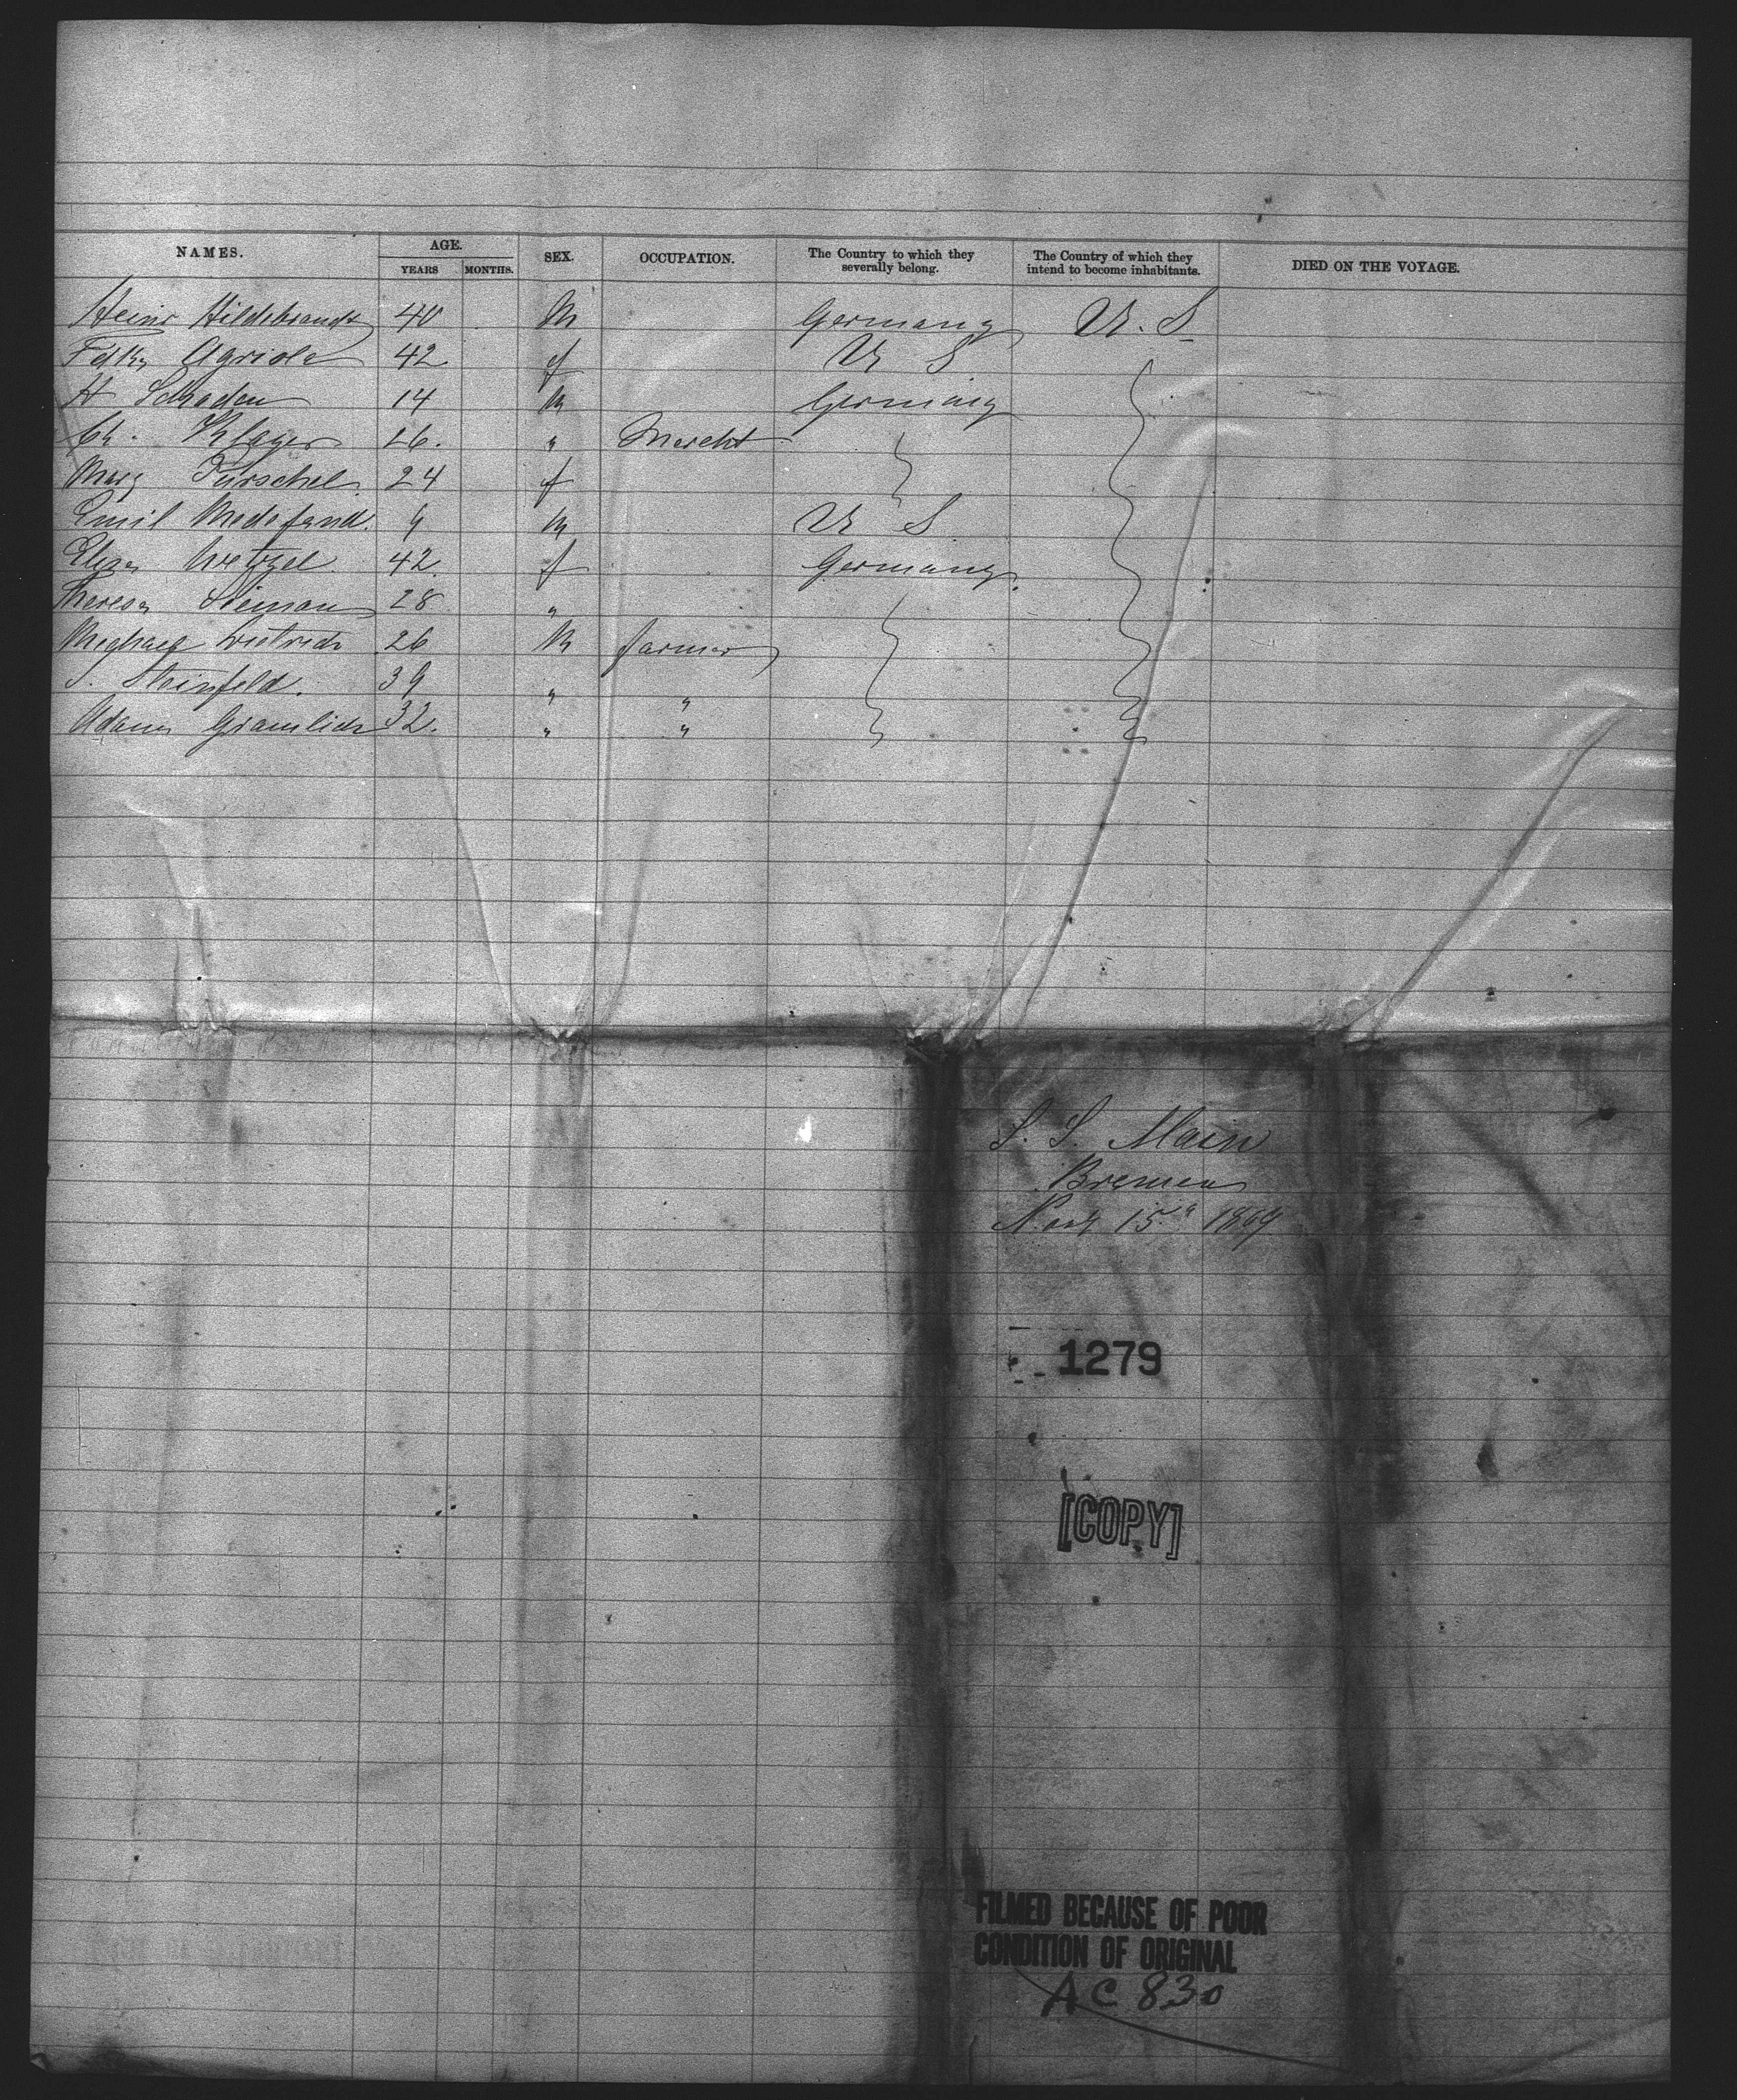 NAMES. AGE. SEX. OCCUPATION. The Country to which they severally belong. The Country of which they intend to become inhabitants. DIED ON THE VOYAGE.
YEARS MONTHS.
Heinr Hildebrandt 40 M Germany U. S.
Agriola 42 f U S
H Schaden 14 M Germany
Ch. Klager 26. " Mercht
Marg Purschel 24 f
Emil 9 M U S
Elisa Wetzel 42 f Germany
Theresa Sieman 28 "
Dietrich 26 M farmer
J. Steinfeld. 39 " "
Adam Gramlich 32. " "
S. S. Main
Bremen
15" 1869
1279
[COPY]
FILMED BECAUSE OF POOR
CONDITION OF ORIGINAL
AC 830